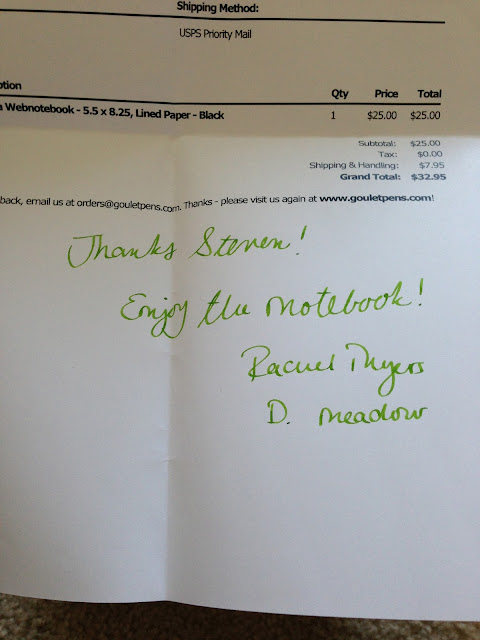 Shipping Method:
USPS Priority Mail
ption Qty Price Total
a Webnotebook - 5.5 x 8.25, Lined Paper - Black 1 $25.00 $25.00
Subtotal: $25.00
Tax: $0.00
Shipping & Handling: $7.95
Grand Total: $32.95
back, email us at orders@gouletpens.com. Thanks - please visit us again at www.gouletpens.com!
Thanks Steven!
Enjoy the notebook!
Rachel Myers
D. Meadow